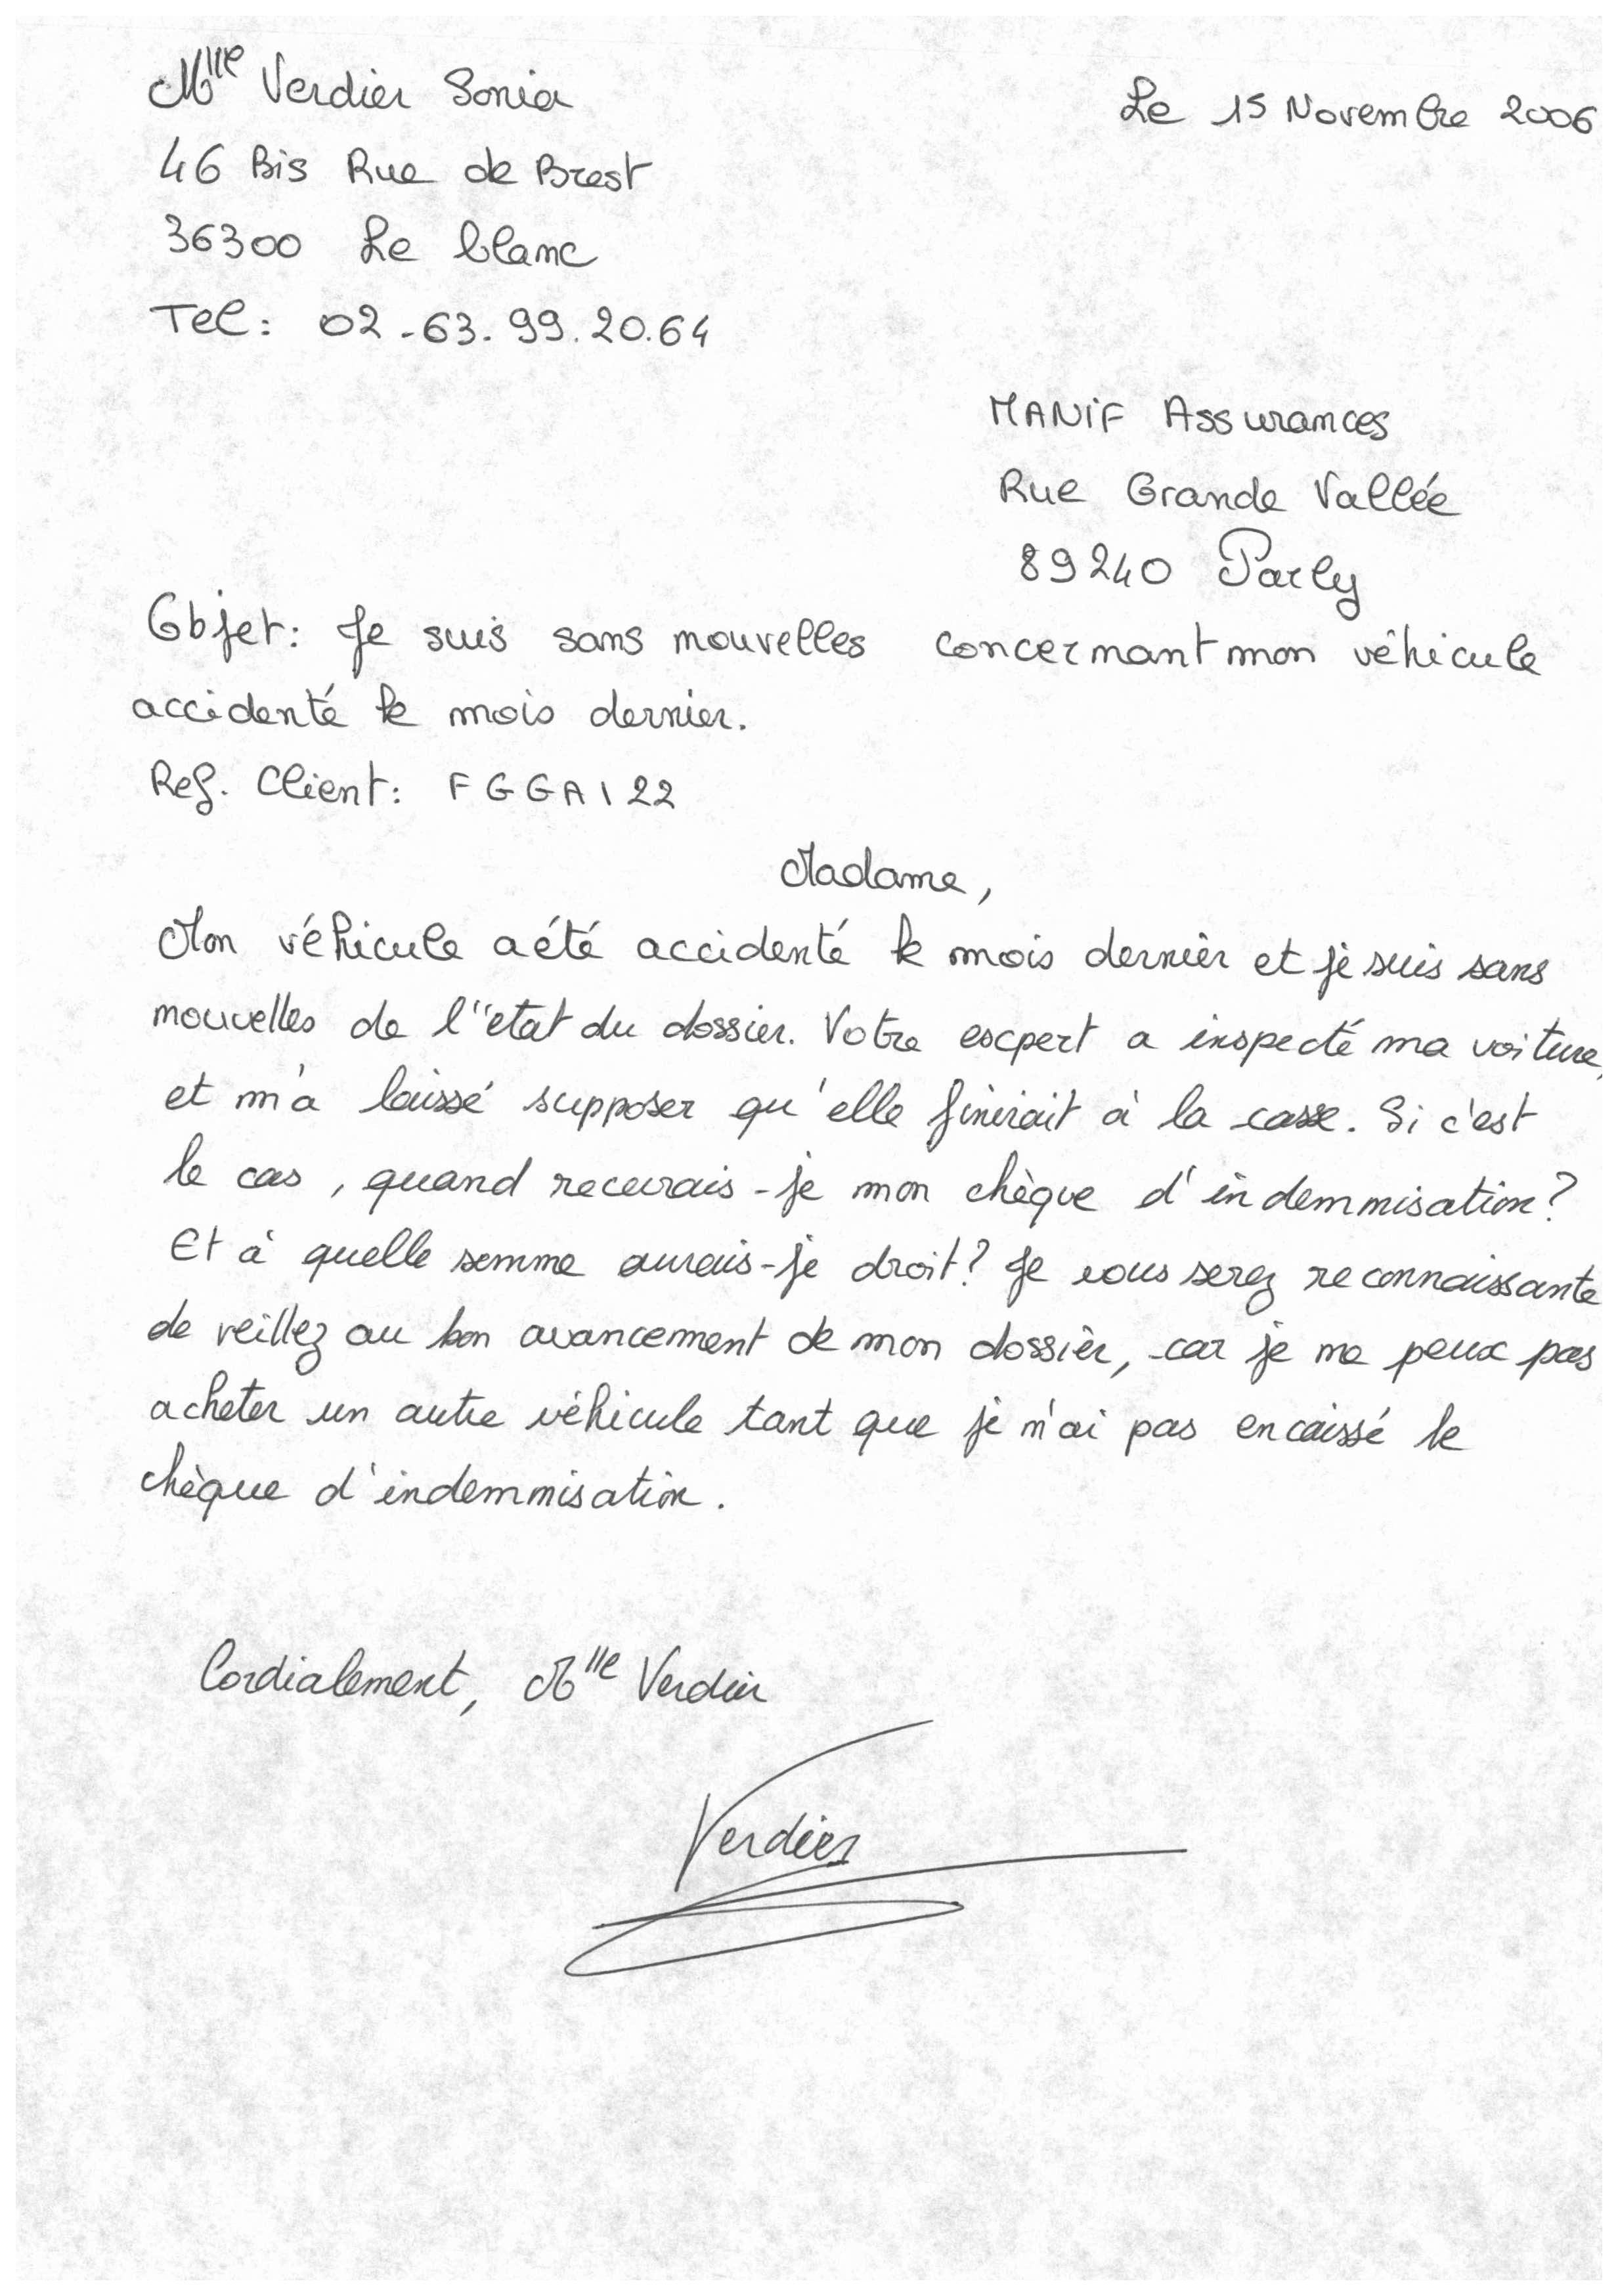 Mlle Verdier Sonia
Le 15 Novembre 2006
46 Bis Rue de Brest
36300 Le blanc
Tel : 02-63.99.20.64
MANIF Assurances
Rue Grande Vallée
89240 Parly
Objet : Je suis sans nouvelles concernant mon véhicule
accidenté le mois dernier.
Ref. Client : FGGA122
Madame,
Mon véhicule a été accidenté le mois dernier et je suis sans
nouvelles de l'état du dossier. Votre expert a inspecté ma voiture,
et m'a laissé supposer qu'elle finirait à la casse. Si c'est
le cas, quand recevrais-je mon chèque d'indemnisation ?
Et à quelle somme aurais-je droit ? Je vous serez reconnaissante
de veillez au bon avancement de mon dossier, car je ne peux pas
acheter un autre véhicule tant que je n'ai pas encaissé le
chèque d'indemnisation.
Cordialement, Mlle Verdier
Verdier